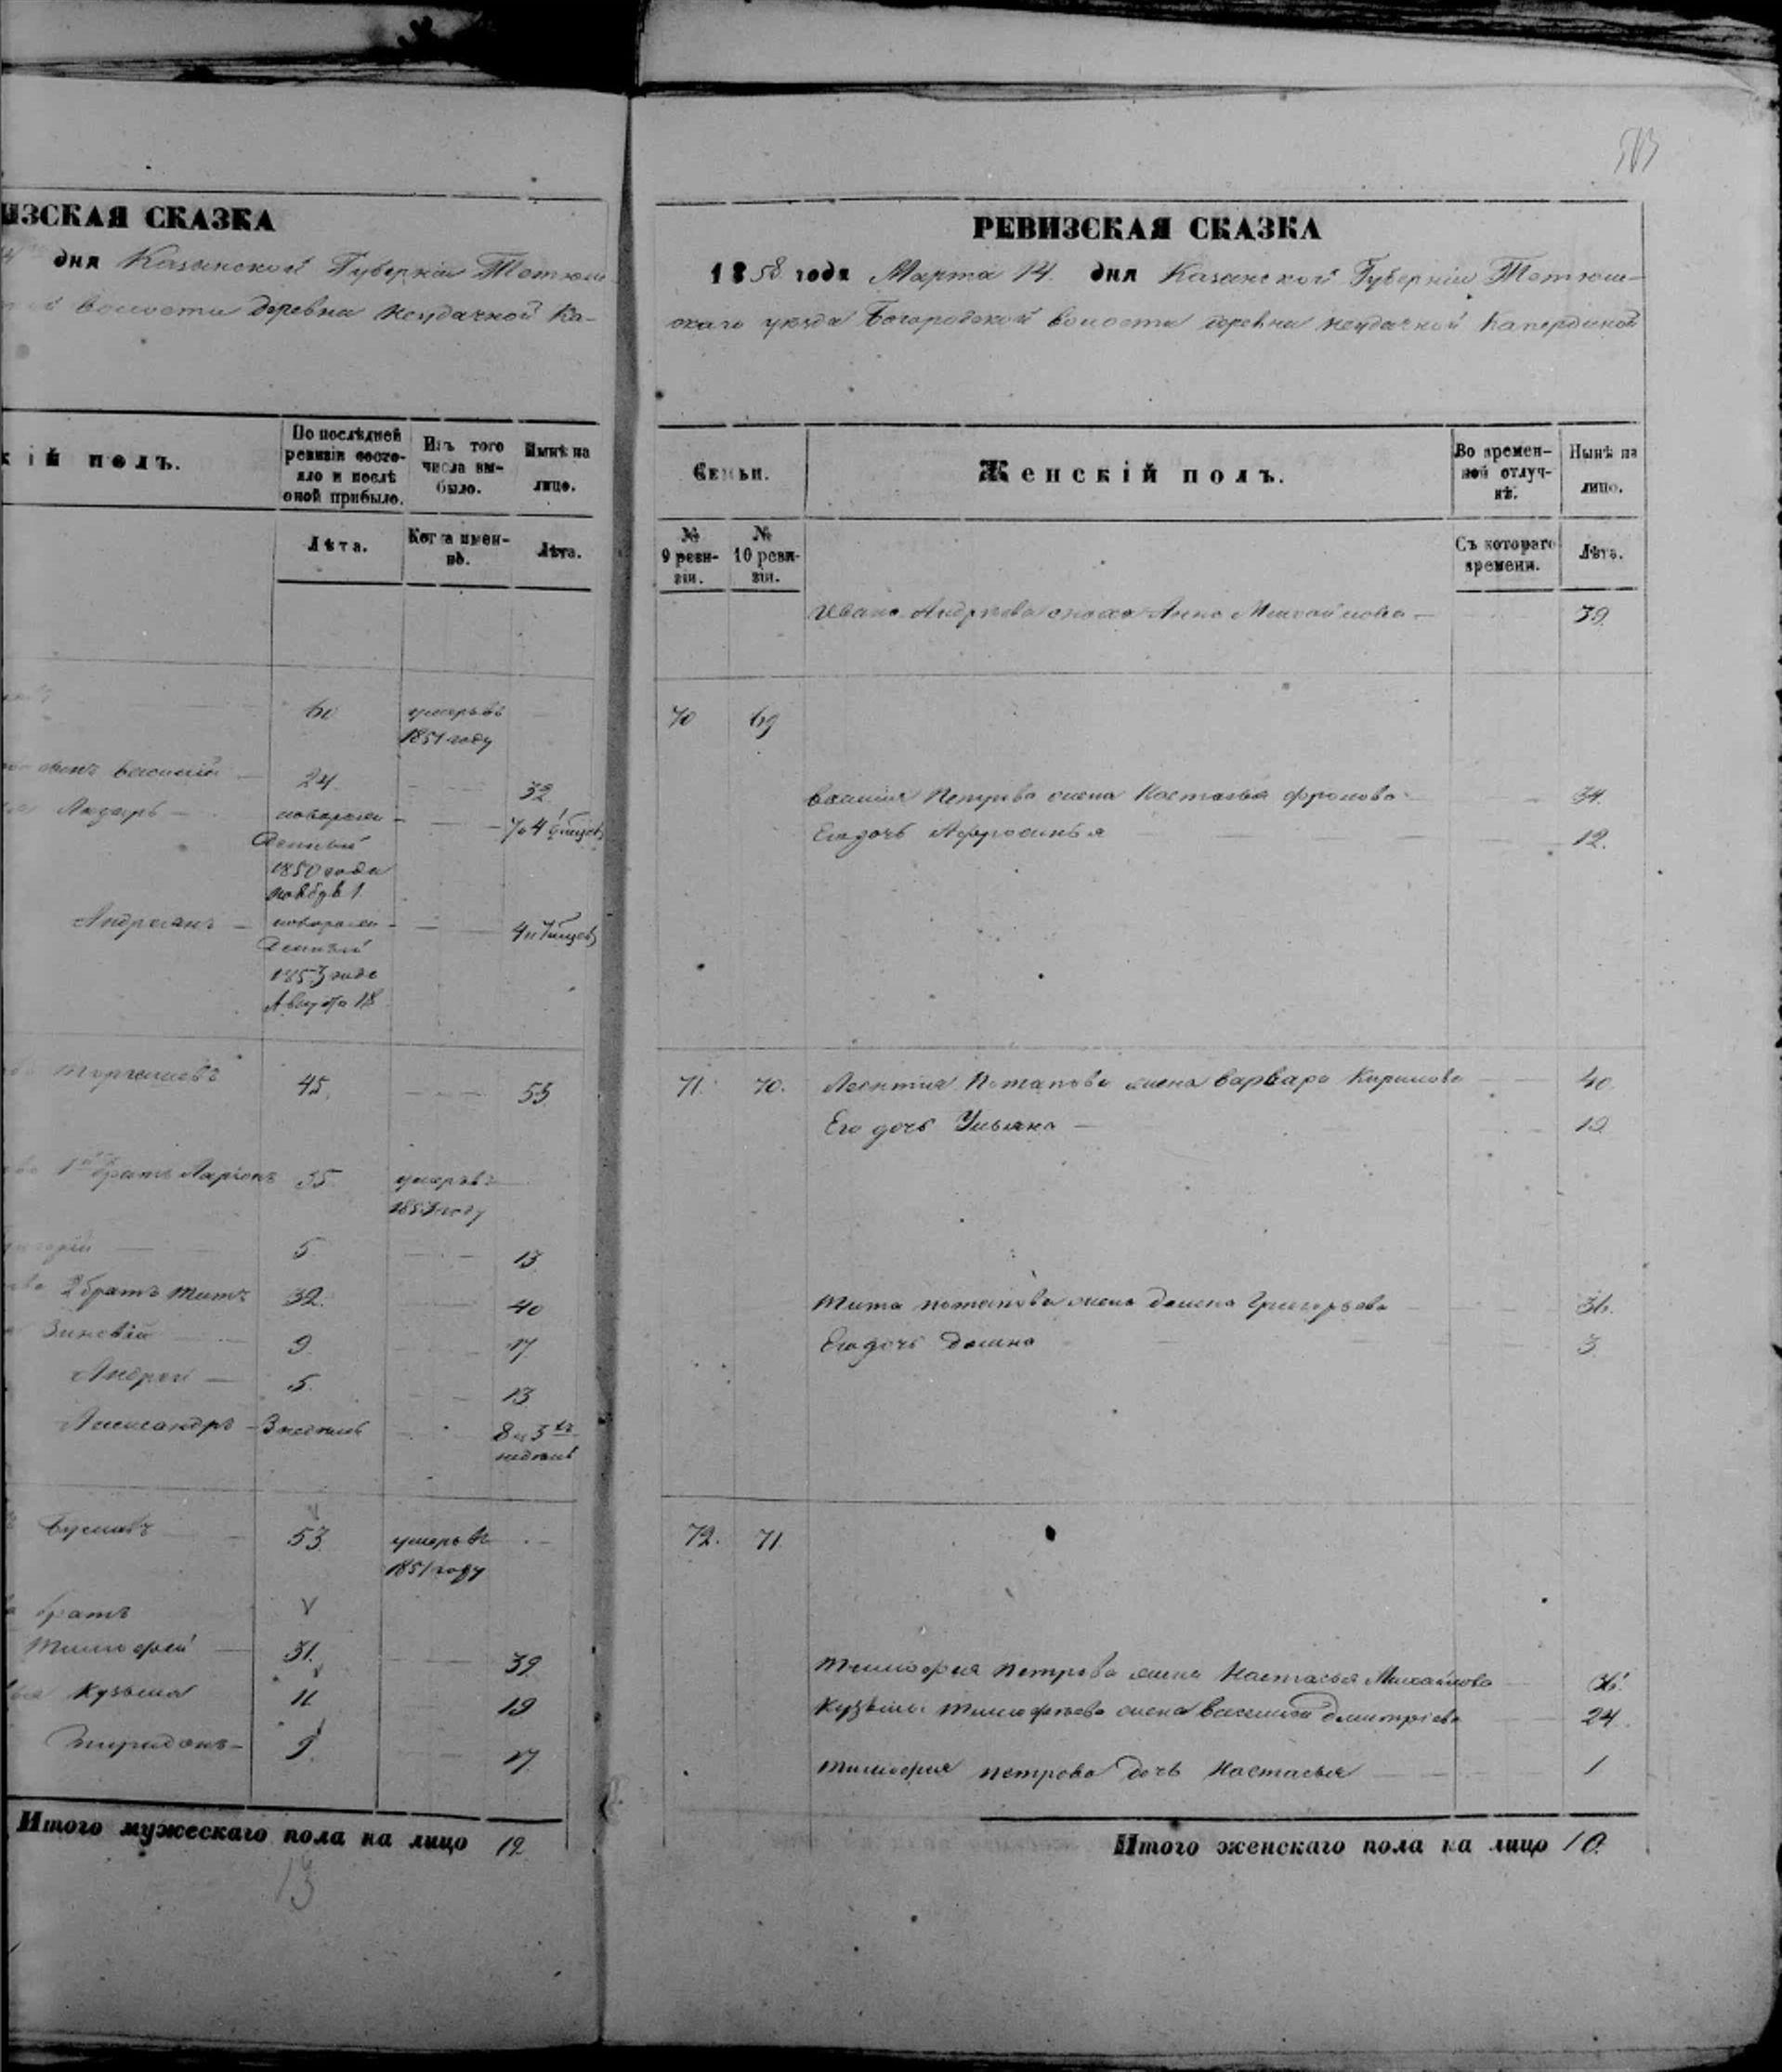 ИЗСКАЯ СКАЗКА
дня Казанской Губерніи Тетюш
волости деревни Неудачной Ка-
кій полъ.
По последней ревизіи состояло и послѣ оной прибыло.
Изъ того числа вы-было.
Нынѣ на лицо.
Лѣта.
Когда имен-но.
Лѣта.
60 умеръ въ
1851 году
сынъ Василій 24. 32
Лазарь новорож 7 и 4 1/2 мѣсяцов
денный
1850 года
Ноября 1
Андреянъ новорож 4 и 7 мѣсяцов
денный
1853 года
Августа 18
45 53
1й братъ Ларіонъ 35 умеръ въ
185 году
горій 5. 13
2 братъ Титъ 32. 40
Зиновій 9 17
Андрей 5. 13
Александръ 3 недѣль 8 и 3хъ
недѣль
53 умеръ въ
1851 году
братъ
Тимофей 31. 39
Кузьма 11 19
Спиридонъ 9. 17
Итого мужескаго пола на лицо 12
13
РЕВИЗСКАЯ СКАЗКА
1858 года Марта 14. дня Казанской Губерніи Тетюш-
скаго уѣзда Богородской волости деревни Неудачной Капердиной
Семьи.
Женскій полъ.
Во времен-ной отлуч-кѣ.
Нынѣ на лицо.
№ 9 реви-зіи.
№ 10 реви-зіи.
Съ котораго времени.
Лѣта.
Ивана Андреева сноха Анна Михайлова 39.
70 69
Василія Петрова жена Настасья Фролова 34.
Его дочь Афросинья 12.
71. 70. Леонтія Потапова жена Варвара Кирилова 40
Его дочь Ульяна 19
Тита Потапова жена Домна Григорьева 36.
Его дочь Домна 3
72. 71
Тимофея Петрова жена Настасья Михайлова
Кузьмы Тимофѣева жена Василиса Дмитріева 24.
Тимофея Петрова дочь Настасья 1
Итого женскаго пола на лицо 10.